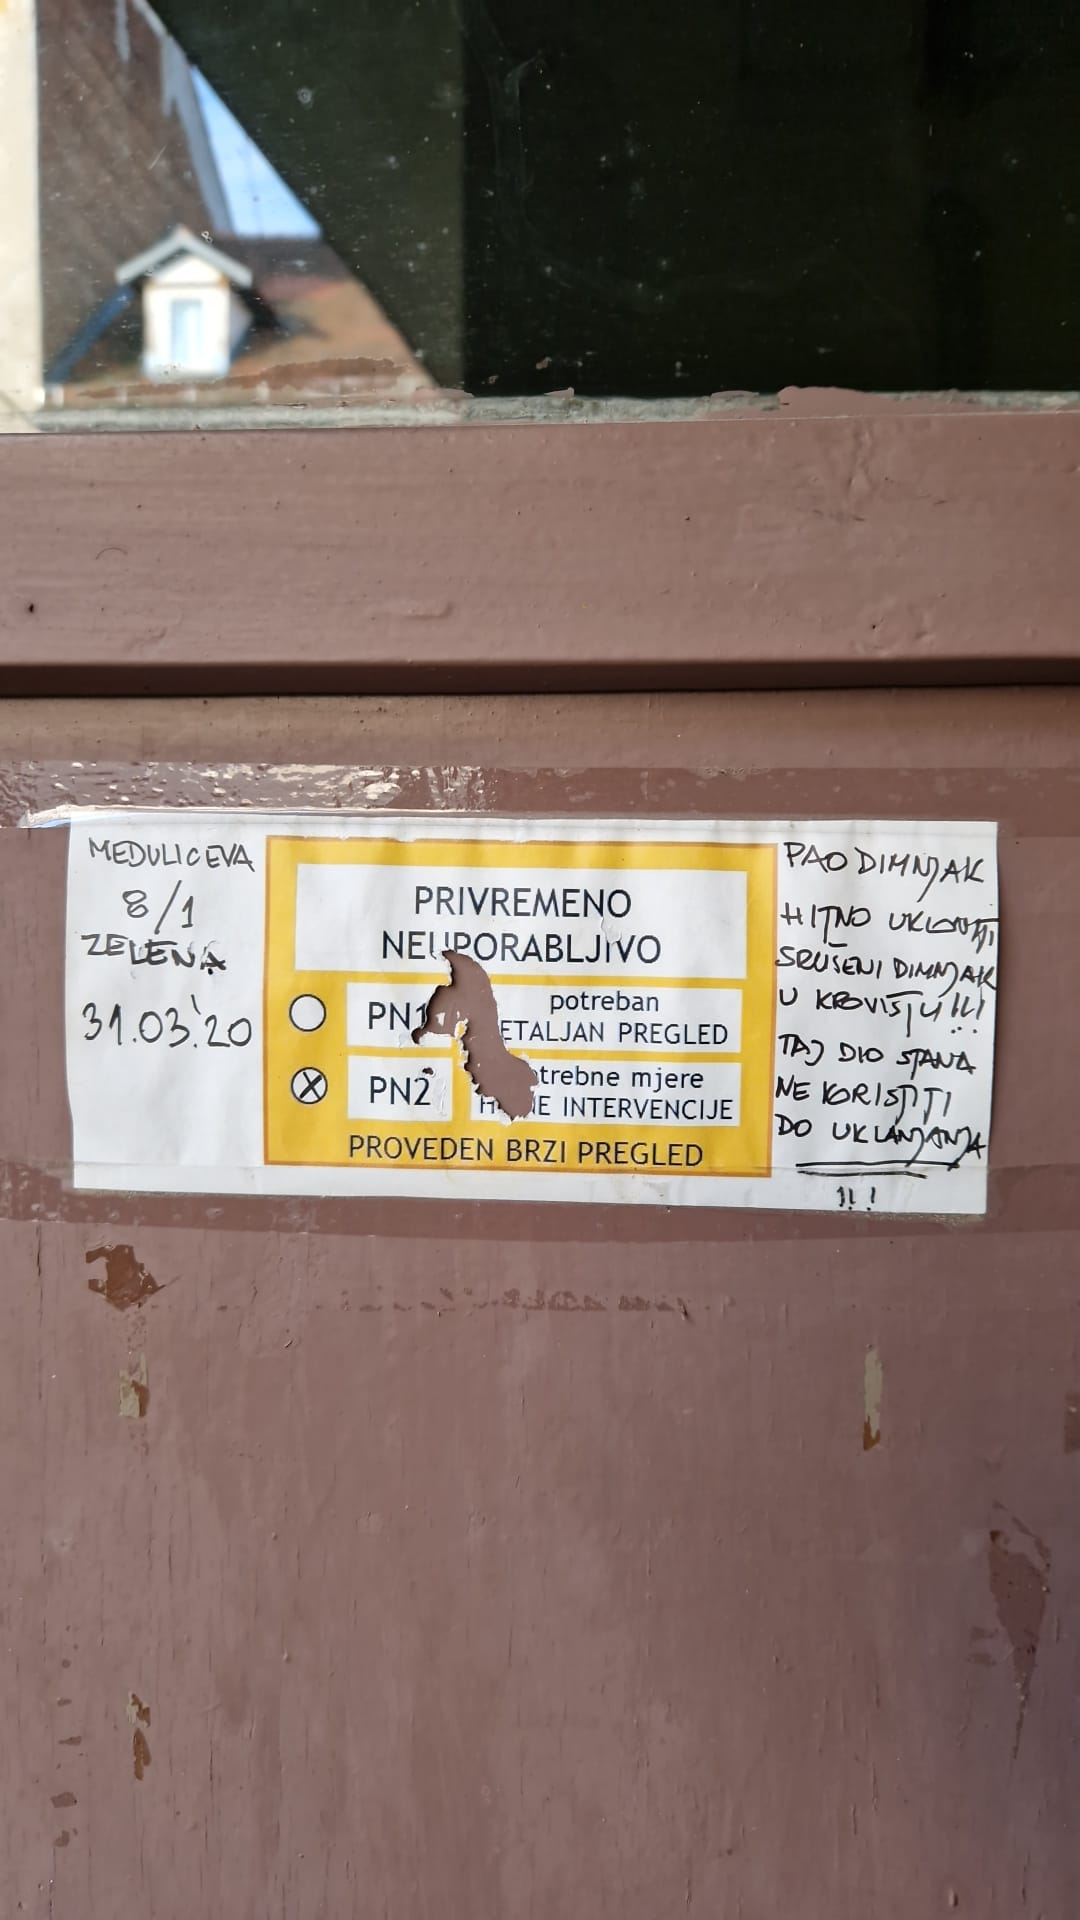 MEDULIĆEVA
8/1
ZELENA
31.03.'20
PRIVREMENO
NEUPORABLJIVO
PN1
potreban
ETALJAN PREGLED
PN2
trebne mjere
NE INTERVENCIJE
PROVEDEN BRZI PREGLED
PAO DIMNJAK
HITNO UKLONITI
SRUŠENI DIMNJAK
U KROVIŠTU!!!
TAJ DIO STANA
NE KORISTITI
DO UKLANJANJA
!!!